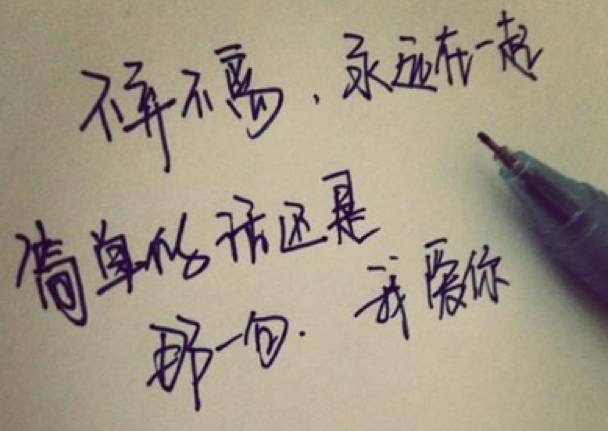 不弃不离，永远在一起
简单的话还是
那一句.我爱你